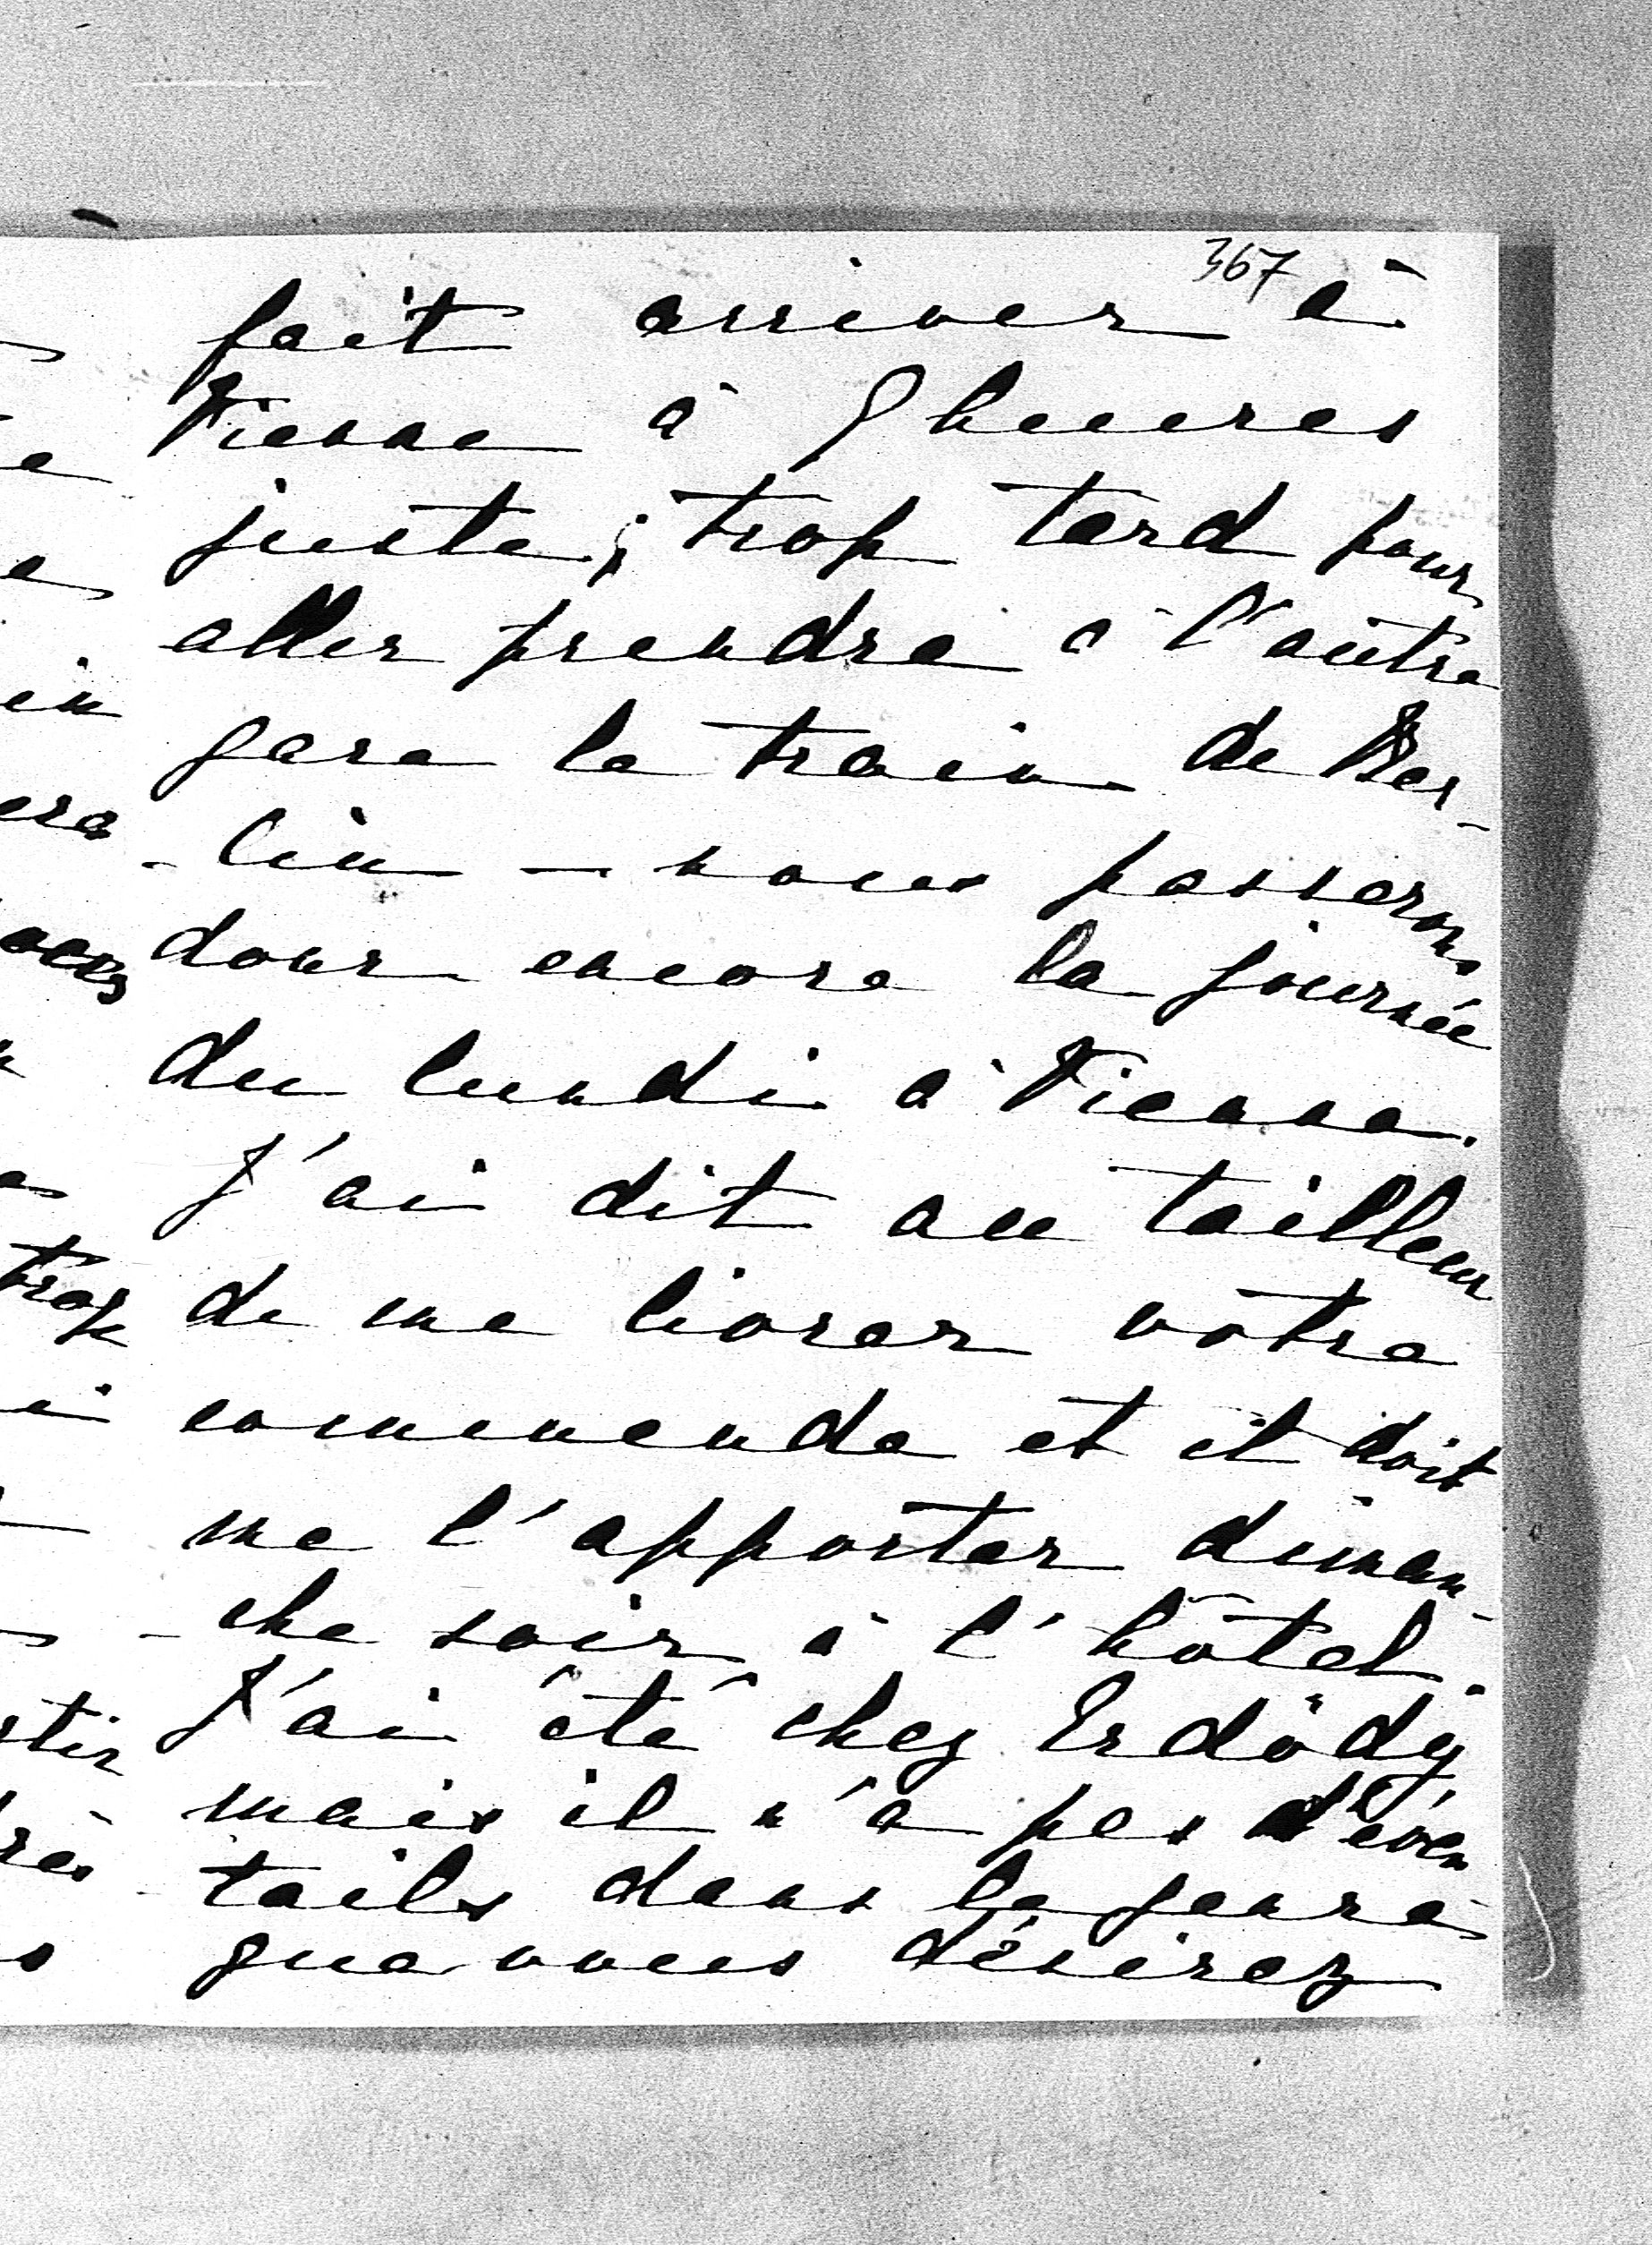 367
fait arriver à
Vienne à 9 heures
juste; trop tard pour
aller prendre à l'autre
gare le train de Ber-
-lin – nous passerons
donc encore la journée
du lundi à Vienne.
J'ai dit au tailleur
de me livrer votre
commende et il doit
me l'apporter diman-
-che soir à l'hôtel.
J'ai été chez Erdödy,
mais il n'a pas d'éven
-tails dans le genre
que vous désirez